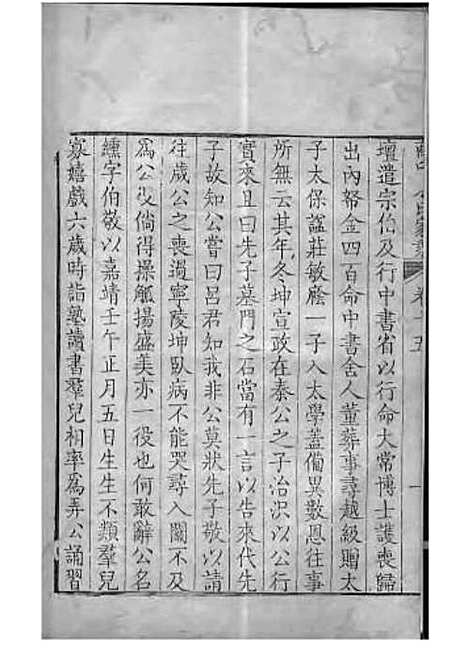 壇遣宗伯及行中書省以行命大常博士護喪歸
出內帑金四百命中書舍人董葬事尋越級贈太
子太保謚莊敏廕一子入太學蓋備異數恩徃事
所無云其年冬坤宣政在秦公之子冶沢以公行
實來且曰先子墓門之石當有一言以告來代先
子故知公嘗曰呂君知我非公莫狀先子敬以請
徃歲公之喪過寧陵坤臥病不能哭尋入關不及
為公役倘得操觚揚盛美亦一役也何敢辭公名
纁字伯敬以嘉靖壬午正月五日生生不類羣兒
寡嬉戲六歲時詣塾讀書羣兒相率為弄公誦習
卷十五